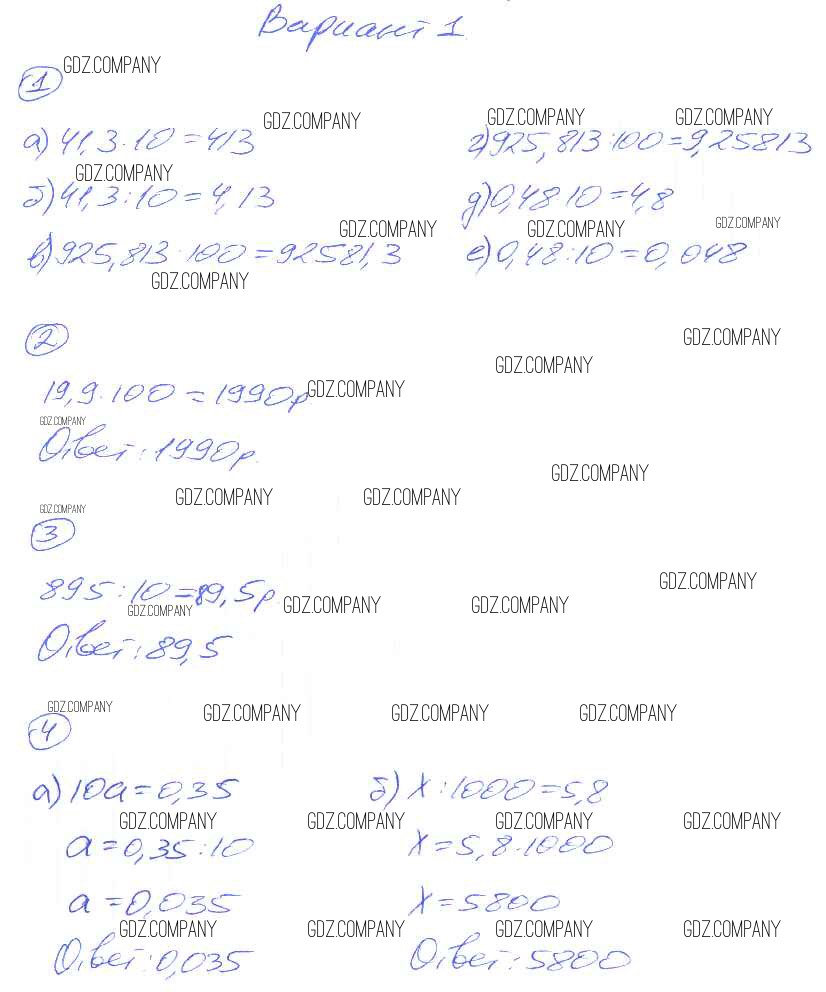 Вариант 1
GDZ.COMPANY
1
GDZ.COMPANY GDZ.COMPANY GDZ.COMPANY
а) 41,3·10=413 г) 925,813:100=9,25813
GDZ.COMPANY
б) 41,3:10=4,13 д) 0,48·10=4,8
GDZ.COMPANY GDZ.COMPANY GDZ.COMPANY
в) 925,813·100=92581,3 е) 0,48:10=0,048
GDZ.COMPANY
2
GDZ.COMPANY
GDZ.COMPANY
19,9·100=1990р GDZ.COMPANY
GDZ.COMPANY
Ответ: 1990р.
GDZ.COMPANY
GDZ.COMPANY GDZ.COMPANY
GDZ.COMPANY
3
GDZ.COMPANY
895:10=89,5р
GDZ.COMPANY GDZ.COMPANY GDZ.COMPANY
Ответ: 89,5
GDZ.COMPANY GDZ.COMPANY GDZ.COMPANY GDZ.COMPANY
4
а) 10а=0,35 б) х:1000=5,8
GDZ.COMPANY GDZ.COMPANY GDZ.COMPANY GDZ.COMPANY
а=0,35:10 х=5,8·1000
а=0,035 х=5800
GDZ.COMPANY GDZ.COMPANY GDZ.COMPANY GDZ.COMPANY
Ответ: 0,035 Ответ: 5800